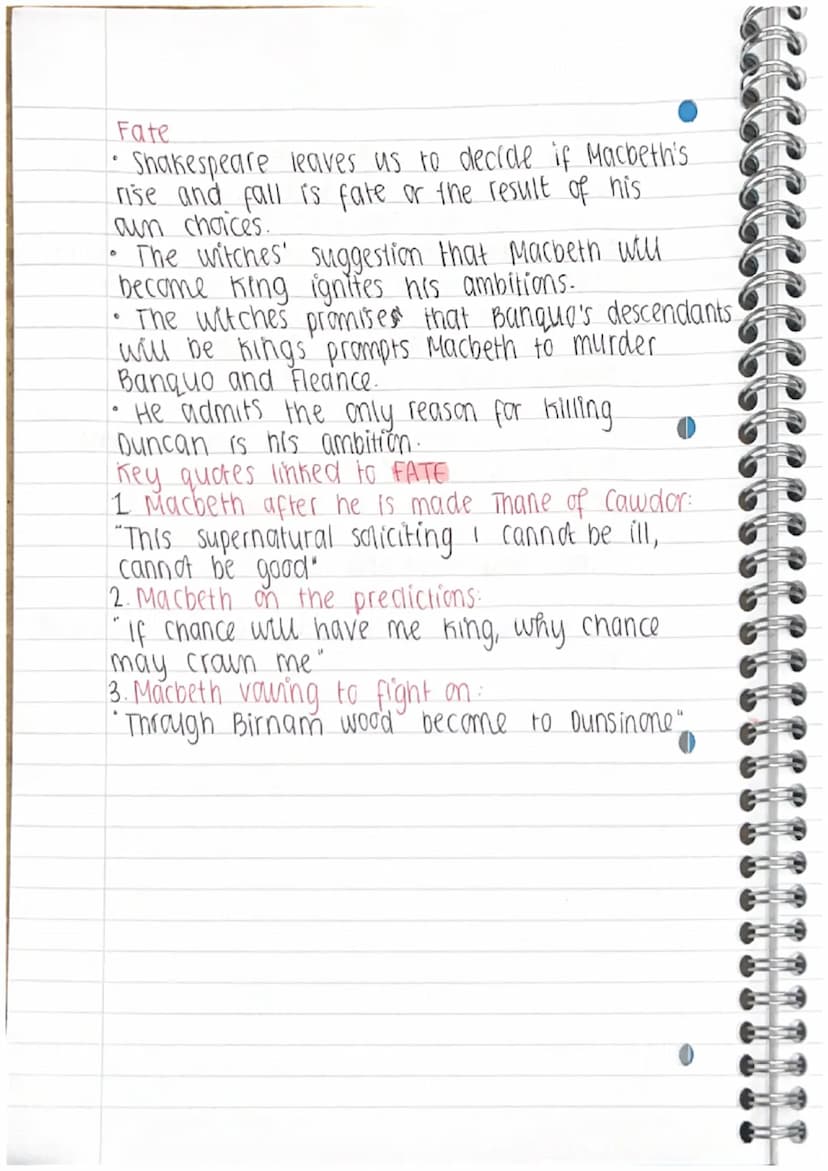 Fate
• Shakespeare leaves us to decide if Macbeth's
rise and fall is fate or the result of his
own choices.
• The witches' suggestion that Macbeth will
become King ignites his ambitions.
• The witches promises that Banquo's descendants
will be kings prompts Macbeth to murder
Banquo and Fleance.
• He admits the only reason for killing
Duncan is his ambition.
Key quotes linked to FATE
1 Macbeth after he is made Thane of Cawdor:
"This supernatural soliciting I cannot be ill,
cannot be good"
2. Macbeth on the predictions:
"If chance will have me King, why chance
may crown me"
3. Macbeth vowing to fight on:
"Through Birnam wood become to Dunsinone"